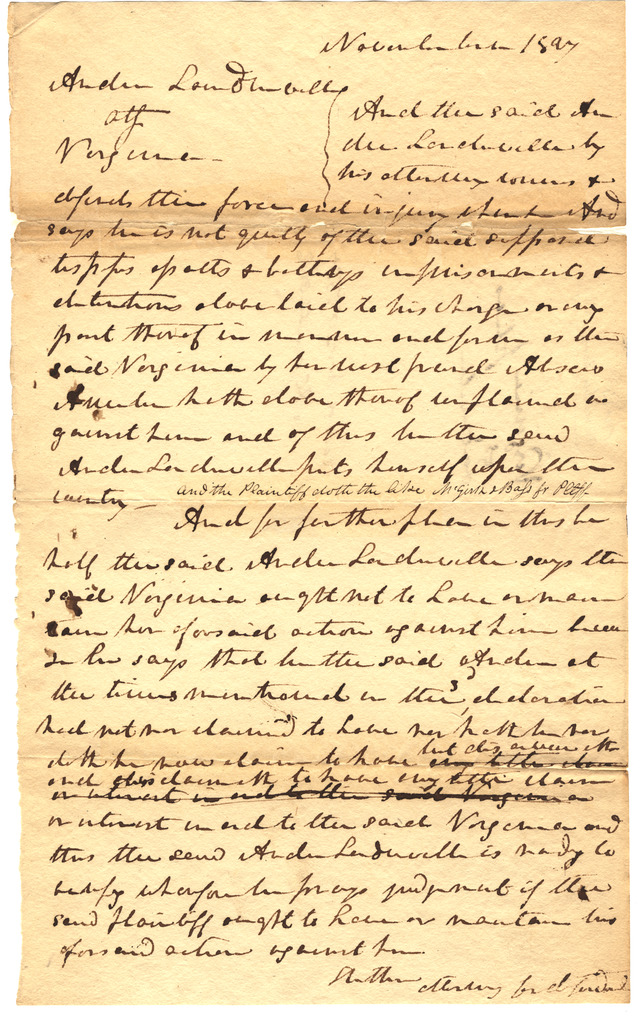 November 1827
Andre Landreville
ats
Virginia
And the said An
dre Landreville by
his attorney comes &
defends the force and injury when & And
says he is not guilty of the said supposed
trespass assaults & batterys imprisonments &
detentions above laid to his charge or any
part thereof in manner and form as the
said Virginia by her next friend
hath above thereof complained a
gainst him and of this he the said
Andre Landreville puts himself upon the
country
and the Plaintiff doth the like McGirk & Bass for Pltff
And for further plea in this be
half the said Andre Landreville says the
said Virginia ought not to have or main
tain her aforsaid action against him becau
se he says that he the said Andre at
the times mentioned in the declaration
had not nor claimed to have nor hath he nor
doth he now claim to have but disavoweth
and disclaimeth to have any title claim
or interest in and to the said Virginia
or interest in and to the said Virginia and
this the said Andre Landreville is ready to
verify wherefore he prays judgment if the
said plaintiff ought to have or maintain his
aforsaid action against him
attorney for defendant